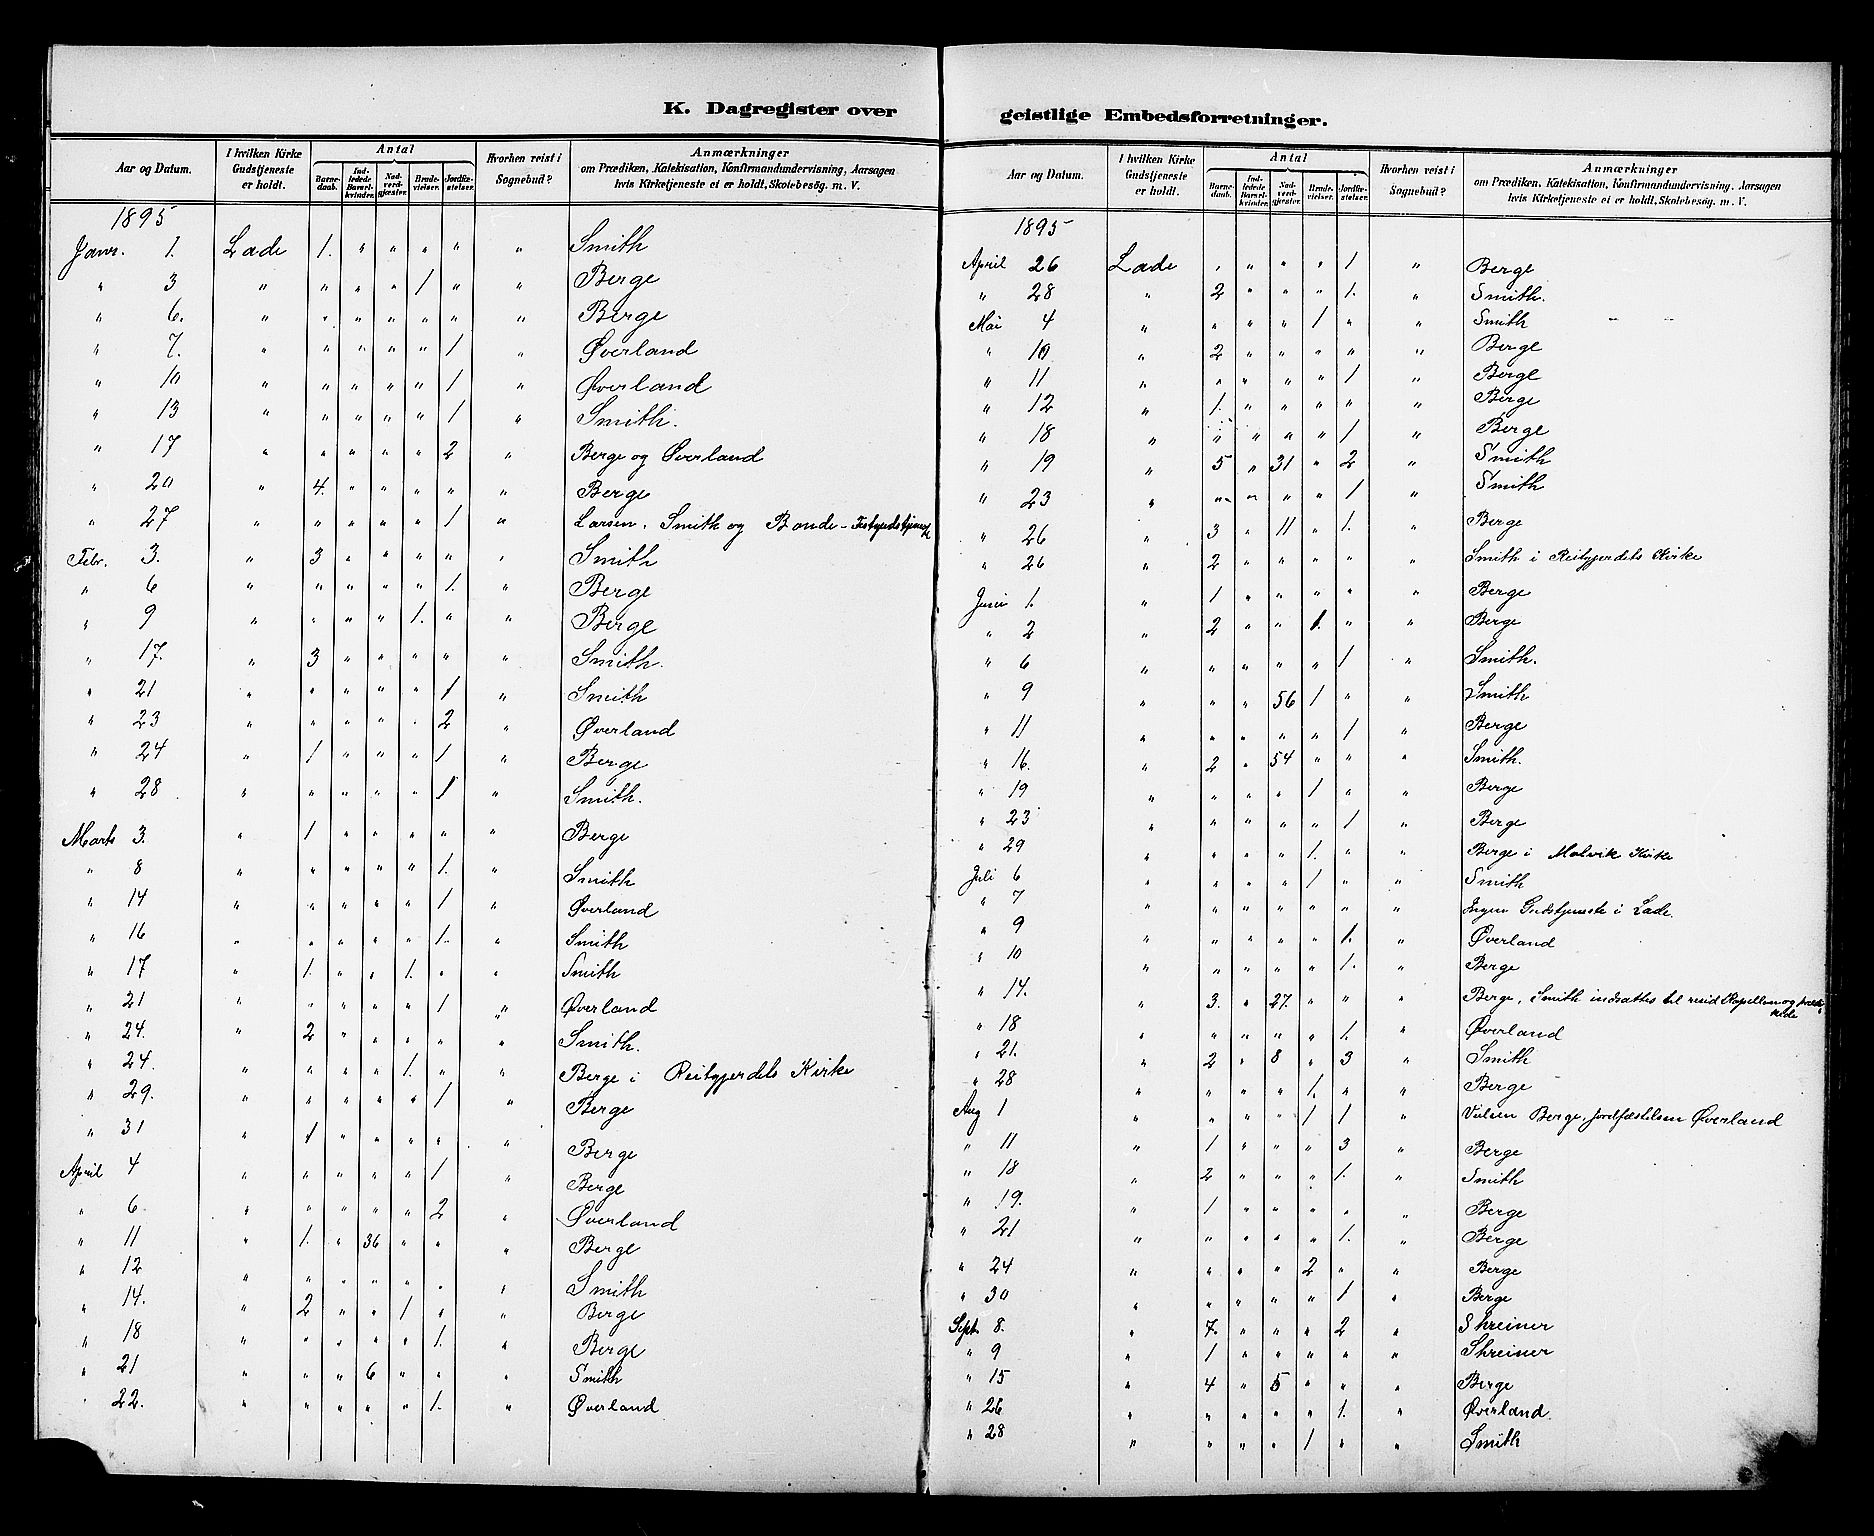 K. Dagregister over
Aar og Datum. I hvilken Kirke Gudstjeneste er holdt. Antal Barnedaab. Indledede Barselkvinder. Nadverdgjæster. Brudevielser. Jordfæstelser. Hvorhen reist i Sognebud? Anmærkninger om Prædiken, Katekisation, Konfirmandundervisning, Aarsagen hvis Kirketjeneste ei er holdt, Skolebesög. m. V.
1895
Janr. 1. Lade 1. " " " " " Smith
" 3 " " " " 1 " " Berge
" 6. " " " " " " " Berge
" 7. " " " " " 1 " Øverland
" 10 " " " " " 1 " Øverland
" 13 " " " " " 1 " Smith.
" 17 " " " " " 2 " Berge og Øverland
" 20 " 4. " " " " " Berge
" 27 " " " " " 1 " Larsen, Smith og Bonde -
Febr. 3. " 3 " " " " " Smith
" 6 " " " " " 1. " Berge
" 9 " " " " 1. " " Berge
" 17. " 3 " " " " " Smith.
" 21 " " " " " 1 " Smith
" 23 " " " " " 2 " Øverland
" 24 " 1 " " " 1 " Berge
" 28 " " " " " 1 " Smith.
Marts 3. " 1 " " " " " Berge
" 8 " " " " " 1. " Smith
" 14 " " " " " 1 " Øverland
" 16 " " " " " 1. " Smith
" 17 " 1. " " 1. " " Smith
" 21 " " " " " 1 " Øverland
" 24. " 2 " " " " " Smith.
" 24. " " " " 1. " " Berge i Reitgjerdets Kirke
" 29. " " " " " 1 " Berge
" 31 " 1 " " " " " Berge
April 4 " " " " " 1 " Berge
" 6. " " " " " 2 " Øverland
" 11 " 1. " 36 " " " Berge
" 12 " " " " " " " Smith
" 14. " 2 " " 1 " " Berge
" 18 " " " " " 1. " Berge
" 21 " " " 6 " " " Smith
" 22. " " " " " 1. " Øverland
geistlige Embedsforretninger.
Aar og Datum. I hvilken Kirke Gudstjeneste er holdt. Antal Barnedaab. Indledede Barselkvinder. Nadverdgjæster. Brudevielser. Jordfæstelser. Hvorhen reist i Sognebud? Anmærkninger om Prædiken, Katekisation, Konfirmandundervisning, Aarsagen hvis Kirketjeneste ei er holdt, Skolebesög. m. V.
1895
April 26 Lade " " " " 1 " Berge
" 28 " 2 " " " 1. " Smith.
Mai 4 " " " " 1 " " Smith
" 10 " 2 " " " " " Berge
" 11 " " " " " 1 " Berge
" 12 " 1. " " " " " Berge
" 18 " " " " " 1 " Berge
" 19 " 5 " 31 " 2 " Smith
" 23 " " " " " 1 " Smith
" 26 " 3 " 11 " 1. " Berge
" 26 " 2 " " " " " Smith i Reitgjerdets Kirke
Juni 1. " 1 " " " " " Berge
" 2 " 2 " " 1. " " Berge
" 6 " " " " " 1 " Smith.
" 9 " " " 56 1 " " Smith
" 11 " " " " " 1 " Berge
" 16. " 2 " 54 " " " Smith.
" 19 " " " " 1 " " Berge
" 23 " " " " " 1 " Berge
" 29 " " " " 1. " " Berge i Malvik Kirke
Juli 6 " " " " 1 " " Smith
" 7 " " " " " " " Ingen Gudstjeneste i Lade.
" 9 " " " " " 1. " Øverland
" 10 " " " " " 1. " Berge
" 14. " 3. " 27. " " " Berge, Smith indsattes til resid Kapellan og
" 18 " " " " " 1. " Øverland
" 21. " 2 " 8 " 3 " Smith
" 28 " " " " 1. " " Berge
Aug 1 " " " " 1 1 " Vielsen Berge, Jordfæstelsen Øverland
" 11 " 1 " " " 3 " Berge
" 18 " 2 " " " 1. " Smith
" 19. " 1 " " " " " Berge
" 21 " " " " " 1. " Berge
" 24 " " " " 2 " " Berge
" 30 " " " " " 1 " Berge
Sept. 8. " 7. " " " 2 " Shreiner
" 9 " 1 " " " " " Shreiner
" 15 " 4 " 5 " " " Berge
" 26 " " " " " 1. " Øverland.
" 28 " " " " 1 " " Smith